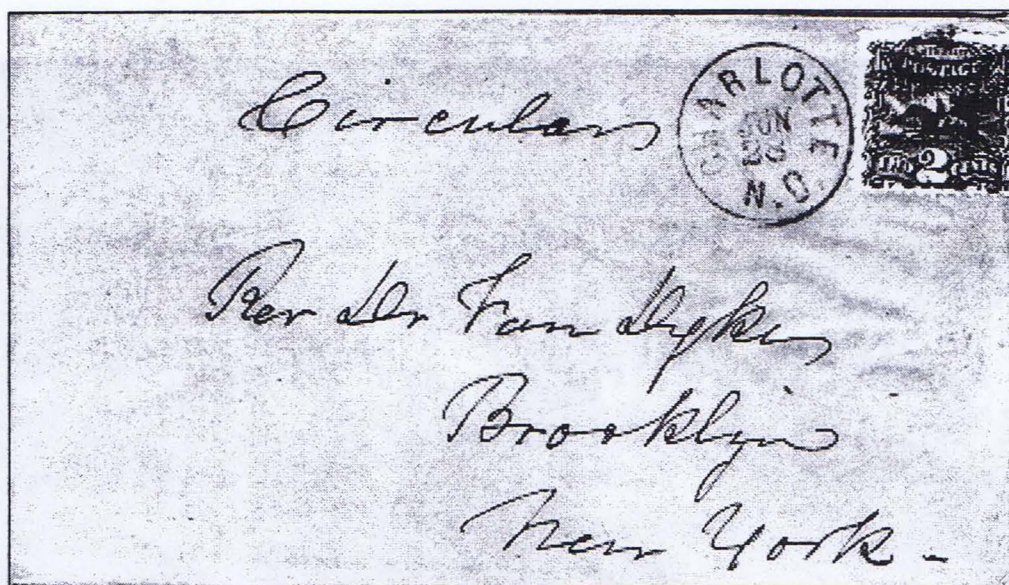 Circular
CHARLOTTE
JUN
N.C.
POSTAGE
2
CENTS
Rev Dr Van Dyke
Brooklyn
New York -